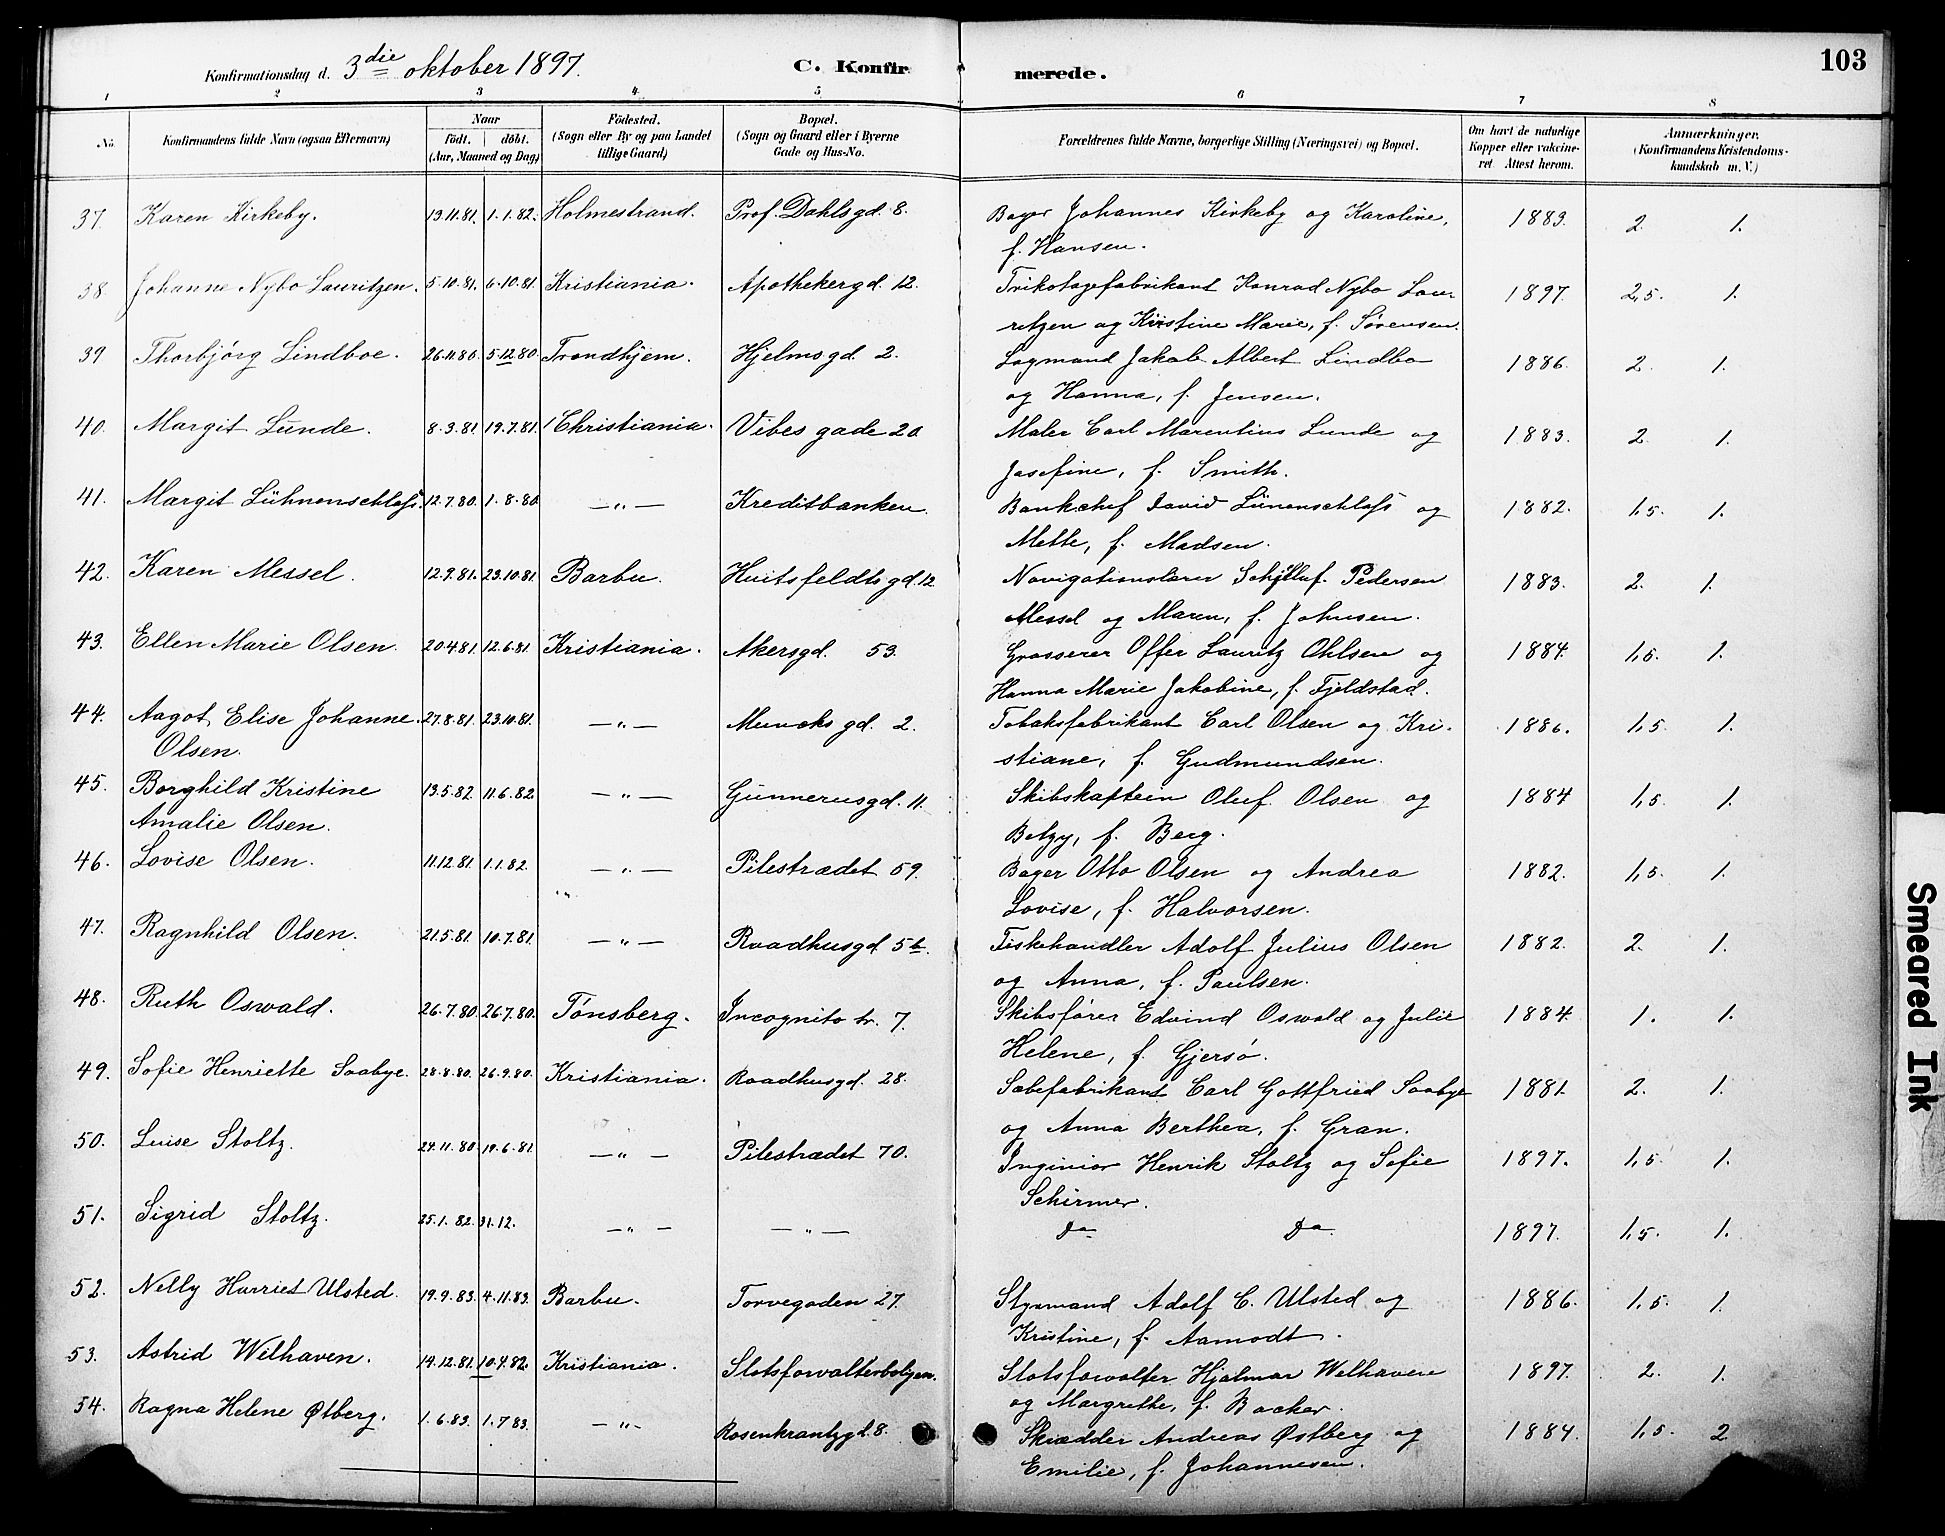 103
Konfirmationsdag d. 3die oktober 1897. C. Konfirmerede.
1 2 3 4 5 6 7 8
No. Konfirmandens fulde Navn (ogsaa Efternavn) Naar født. døbt. (Aar, Maaned og Dag) Fødested. (Sogn eller By og paa Landet tillige Gaard) Bopæl. (Sogn og Gaard eller i Byerne Gade og Hus-No. Forældrenes fulde Navne, borgerlige Stilling (Næringsvei) og Bopæl. Om havt de naturlige Kopper eller vakcineret. Attest herom. Anmærkninger. (Konfirmandens Kristendomskundskab m. V.)
37. Karen Kirkeby. 13.11.81. 1.1.82. Holmestrand. Prof. Dahlsgd. 8. Bager Johannes Kirkeby og Karoline, 1883. 2 1.
f. Hansen.
38. Johanne Nybo Lauritzen. 5.10.81. 6.10.81. Kristiania. Apothekergd. 12. Trikotagefabrikant Konrad Nybo Lau- 1897. 2,5. 1.
ritzen og Kirstine Marie, f. Sørensen.
39 Thorbjørg Lindboe. 26.11.80. 5.12.80. Trondhjem. Hjelmsgd. 2. Lagmand Jakob Albert Lindbo 1886. 2. 1.
og Hanna, f. Jensen.
40. Margit Lunde. 8.3.81. 19.7.81. Christiania. Vibes gade 20. Maler Carl Marentius Lunde og 1883. 2 1.
Josefine, f. Smith.
41. Margit Lühnenschlofs. 12.7.80. 1.8.80. —„— Kreditbanken. Bankchef David Lünenschlofs og 1882. 1,5. 1.
Mette, f. Madsen.
42. Karen Messel. 12.9.81. 23.10.81. Barbu. Huitfeldtsgd. 12. Navigationslærer Pedersen 1883. 2. 1.
Messel og Maren, f. Johnsen.
43. Ellen Marie Olsen. 20.4.81. 12.6.81. Kristiania. Akersgd. 53. Grosserer Offer Lauritz Ohlsen og 1884. 1,5. 1.
Hanna Marie Jakobine, f. Fjeldstad.
44. Aagot Elise Johanne 27.8.81. 23.10.81. —„— Muncks gd. 2. Tobaksfabrikant Carl Olsen og Kri- 1886. 1,5. 1.
Olsen. stiane, f. Gudmundsen.
45. Borghild Kristine 13.5.82. 11.6.82. —„— Gunnerusgd. 11. Skibskaptein Oluf Olsen og 1884 1,5. 1.
Amalie Olsen. Betzy, f. Berg.
46. Lovise Olsen. 11.12.81. 1.1.82. —„— Pilestrædet 59. Bager Otto Olsen og Andrea 1882. 1,5. 1.
Lovise, f. Halvorsen.
47. Ragnhild Olsen. 21.5.81. 10.7.81. —„— Raadhusgd 5b. Fiskehandler Adolf Julius Olsen 1882. 2. 1.
og Anna, f. Paulsen.
48. Ruth Oswald. 26.7.80. 26.7.80. Tønsberg. Incognito tr. 7. Skibsfører Edvind Oswald og Julie 1884. 1. 1.
Helene, f. Gjersø.
49. Sofie Henriette Saabye. 28.8.80. 26.9.80. Kristiania. Raadhusgd. 28. Sæbefabrikant Carl Gottfried Saabye 1881. 2. 1.
og Anna Berthea, f. Gran.
50. Luise Stoltz. 24.11.80. 19.6.81. —„— Pilestrædet 70. Inginiør Henrik Stoltz og Sofie 1897. 1,5. 1.
Schirmer.
51. Sigrid Stoltz. 25.1.82. 31.12. —„— —„— Do Do 1897. 1,5. 1.
52. Nelly Harriet Ulsted. 19.9.83. 4.11.83. Barbu. Torvegaden 27. Styrmand Adolf C. Ulsted og 1886. 1,5. 1.
Kristine, f. Aamodt.
53. Astrid Welhaven. 14.12.81. 10.4.82. Kristiania. Slotsforvalterboligen. Slotsforvalter Hjalmar Welhaven 1897. 2. 1.
og Margrethe, f. Backer.
54. Ragna Helene Østberg. 1.6.83. 1.7.83. —„— Rosenkrantzgd. 8. Skrædder Andreas Østberg og 1884. 1,5. 2
Emilie, f. Johannesen.
Smeared Ink